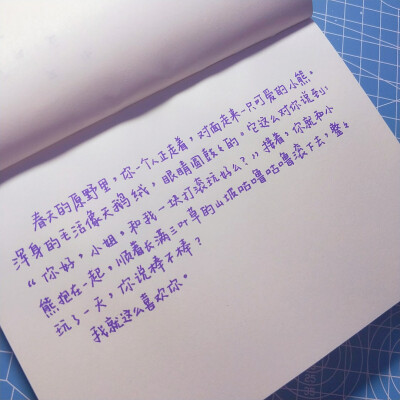 春天的原野里，你一个人正走着，对面走来一只可爱的小熊，
浑身的毛活像天鹅绒，眼睛圆鼓々的，它这么对你说到：
“你好，小姐，和我一块打滚玩好么？”接着，你就和小
熊抱在一起，顺着长满三叶草的山坡咕噜咕噜滚下去，整々
玩了一天，你说棒不棒？
我就这么喜欢你。